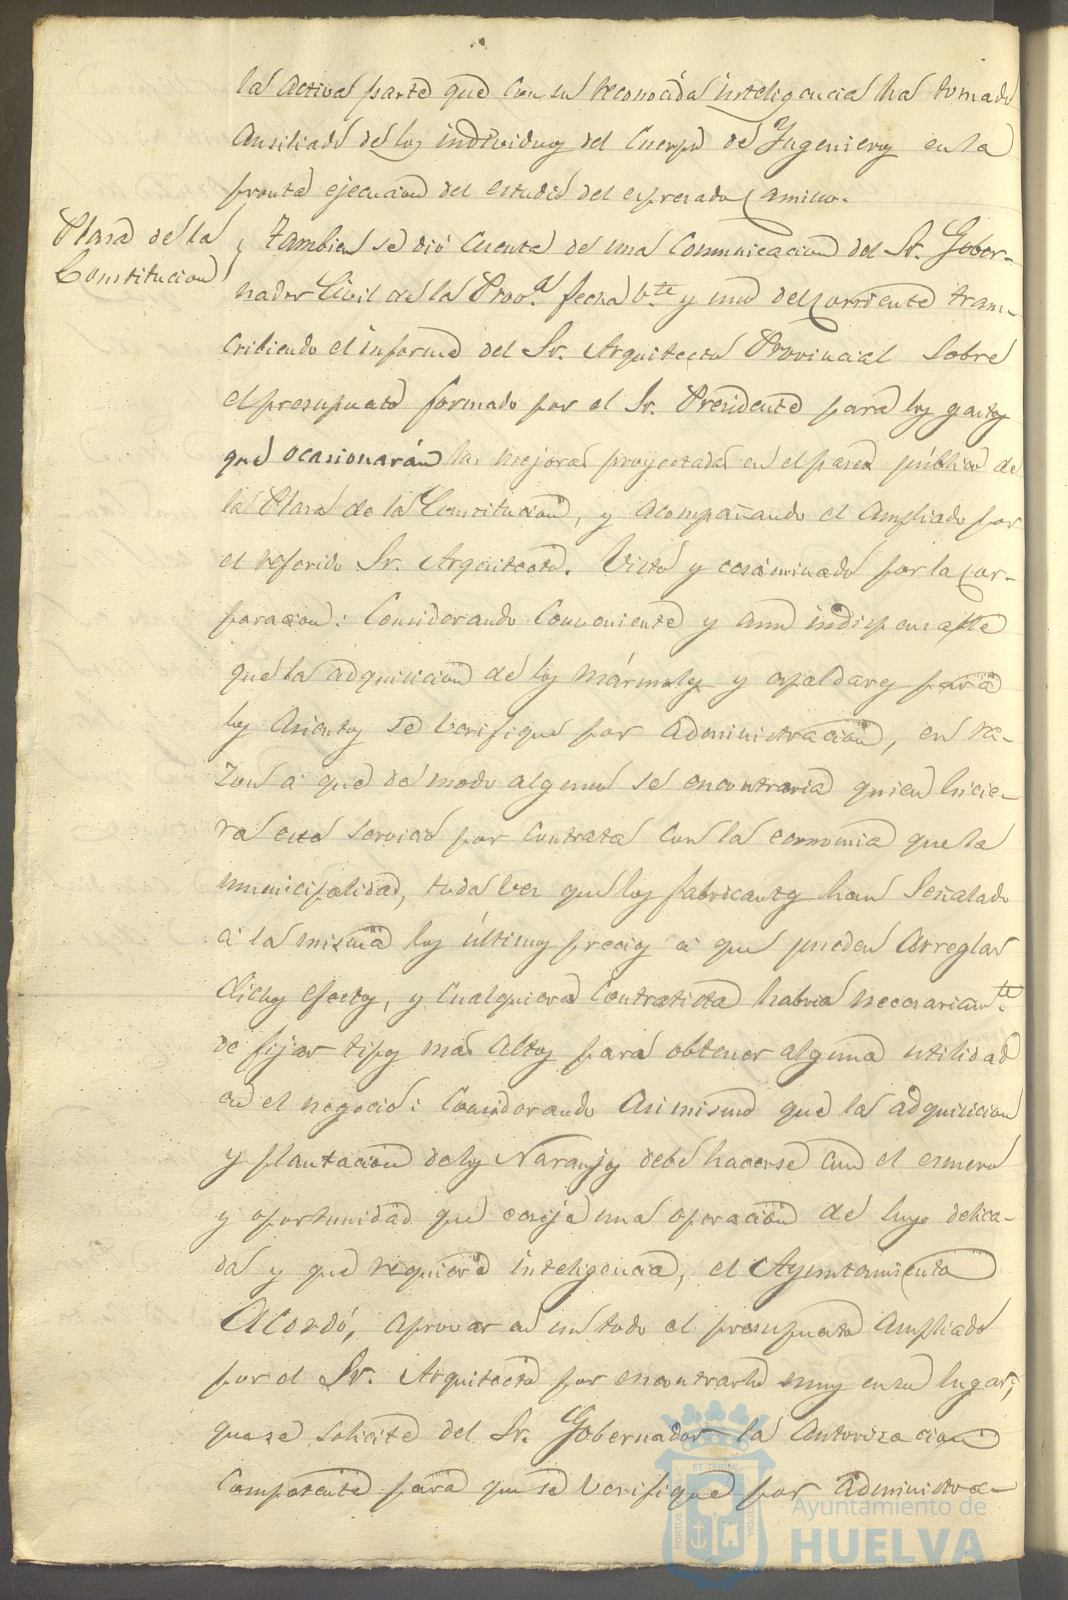 la activa parte que con su reconocida inteligencia ha tomado
ausiliado de los individuos del Cuerpo de Ingenieros en la
pronta ejecucion del estudio del espresado Camino.
Plaza de la
Constitucion
Tambien se dió cuenta de una comunicacion del Sr. Gober-
nador Civil de la Prov.ª fecha v.te y uno del corriente trans-
cribiendo el informe del Sr. Arquitecto Provincial sobre
el presupuesto formado por el Sr. Presidente para los gastos
que ocasionarán las mejoras proyectadas en el paseo público de
la Plaza de la Constitucion, y acompañando el ampliado por
el referido Sr. Arquitecto. Visto y ecsaminado por la Cor-
poracion: Considerando conveniente y aun indispensable
que la adquisicion de los mármoles y espaldares para
los asientos se verifique por administracion, en ra-
zon á que de modo alguno se encontraria quien hicie-
ra este servicio por contrata con la economia que la
municipalidad, toda vez que los fabricantes han señalado
á la misma los últimos precios á que pueden arreglar
dichos efectos, y cualquiera contratista habria necesariam.te
de fijar tipos mas altos para obtener alguna utilidad
en el negocio: Considerando asimismo que la adquisicion
y plantacion de los Naranjos debe hacerse con el esmero
y oportunidad que ecsije una operacion de suyo delica-
da y que requiere inteligencia, el Ayuntamiento
Acordó, aprovar en un todo el presupuesto ampliado
por el Sr. Arquitecto por encontrarlo muy en su lugar;
que se solicite del Sr. Gobernador la autorizacion
competente para que se verifique por administra-
Ayuntamiento de
HUELVA